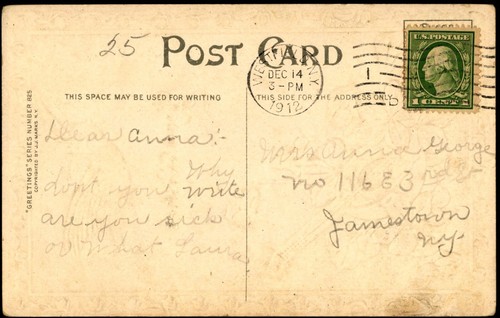 25
POST CARD
WESTFIELD, N.Y.
DEC 14
3-PM
1912
1
U.S. POSTAGE
THIS SPACE MAY BE USED FOR WRITING
THIS SIDE FOR THE ADDRESS ONLY
"GREETINGS" SERIES NUMBER 825
COPYRIGHTED BY J.J. MARKS, N.Y.
Dear Anna:-
Why
dont you write
are you sick
or What Laura
Mrs Anna George
no 116 E 3rd St
Jamestown
NY-